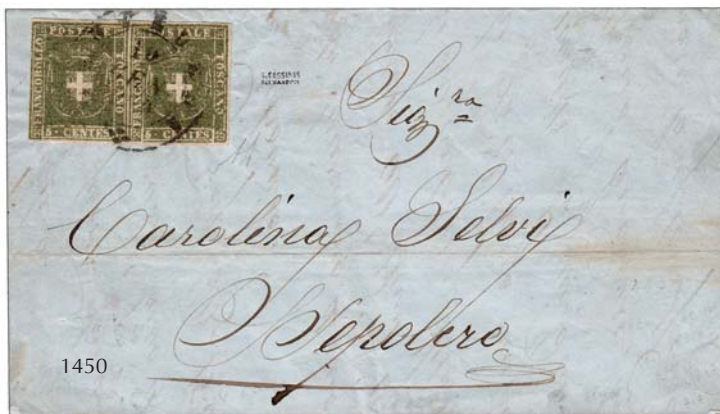 FRANCOBOLLO POSTALE TOSCANO
5 CENTES
FRANCOBOLLO POSTALE TOSCANO
5 CENTES
Sig.ra
Carolina Selvi
1450